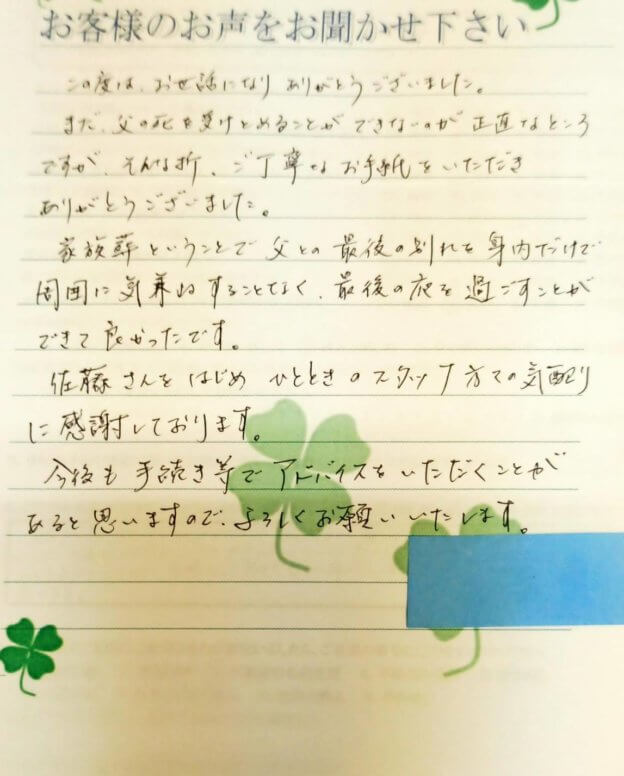 お客様のお声をお聞かせ下さい
この度は、お世話になり ありがとうございました。
まだ、父の死を受けとめることができないのが 正直なところ
ですが、そんな折、ご丁寧な お手紙をいただき
ありがとうございました。
家族葬ということで 父との 最後の別れを 身内だけで
周囲に気兼ねすることなく、最後の夜を過ごすことが
できて良かったです。
佐藤さんをはじめ ひとときのスタッフ方々の気配り
に感謝しております。
今後も 手続き等でアドバイスをいただくことが
あると思いますので、よろしくお願いいたします。